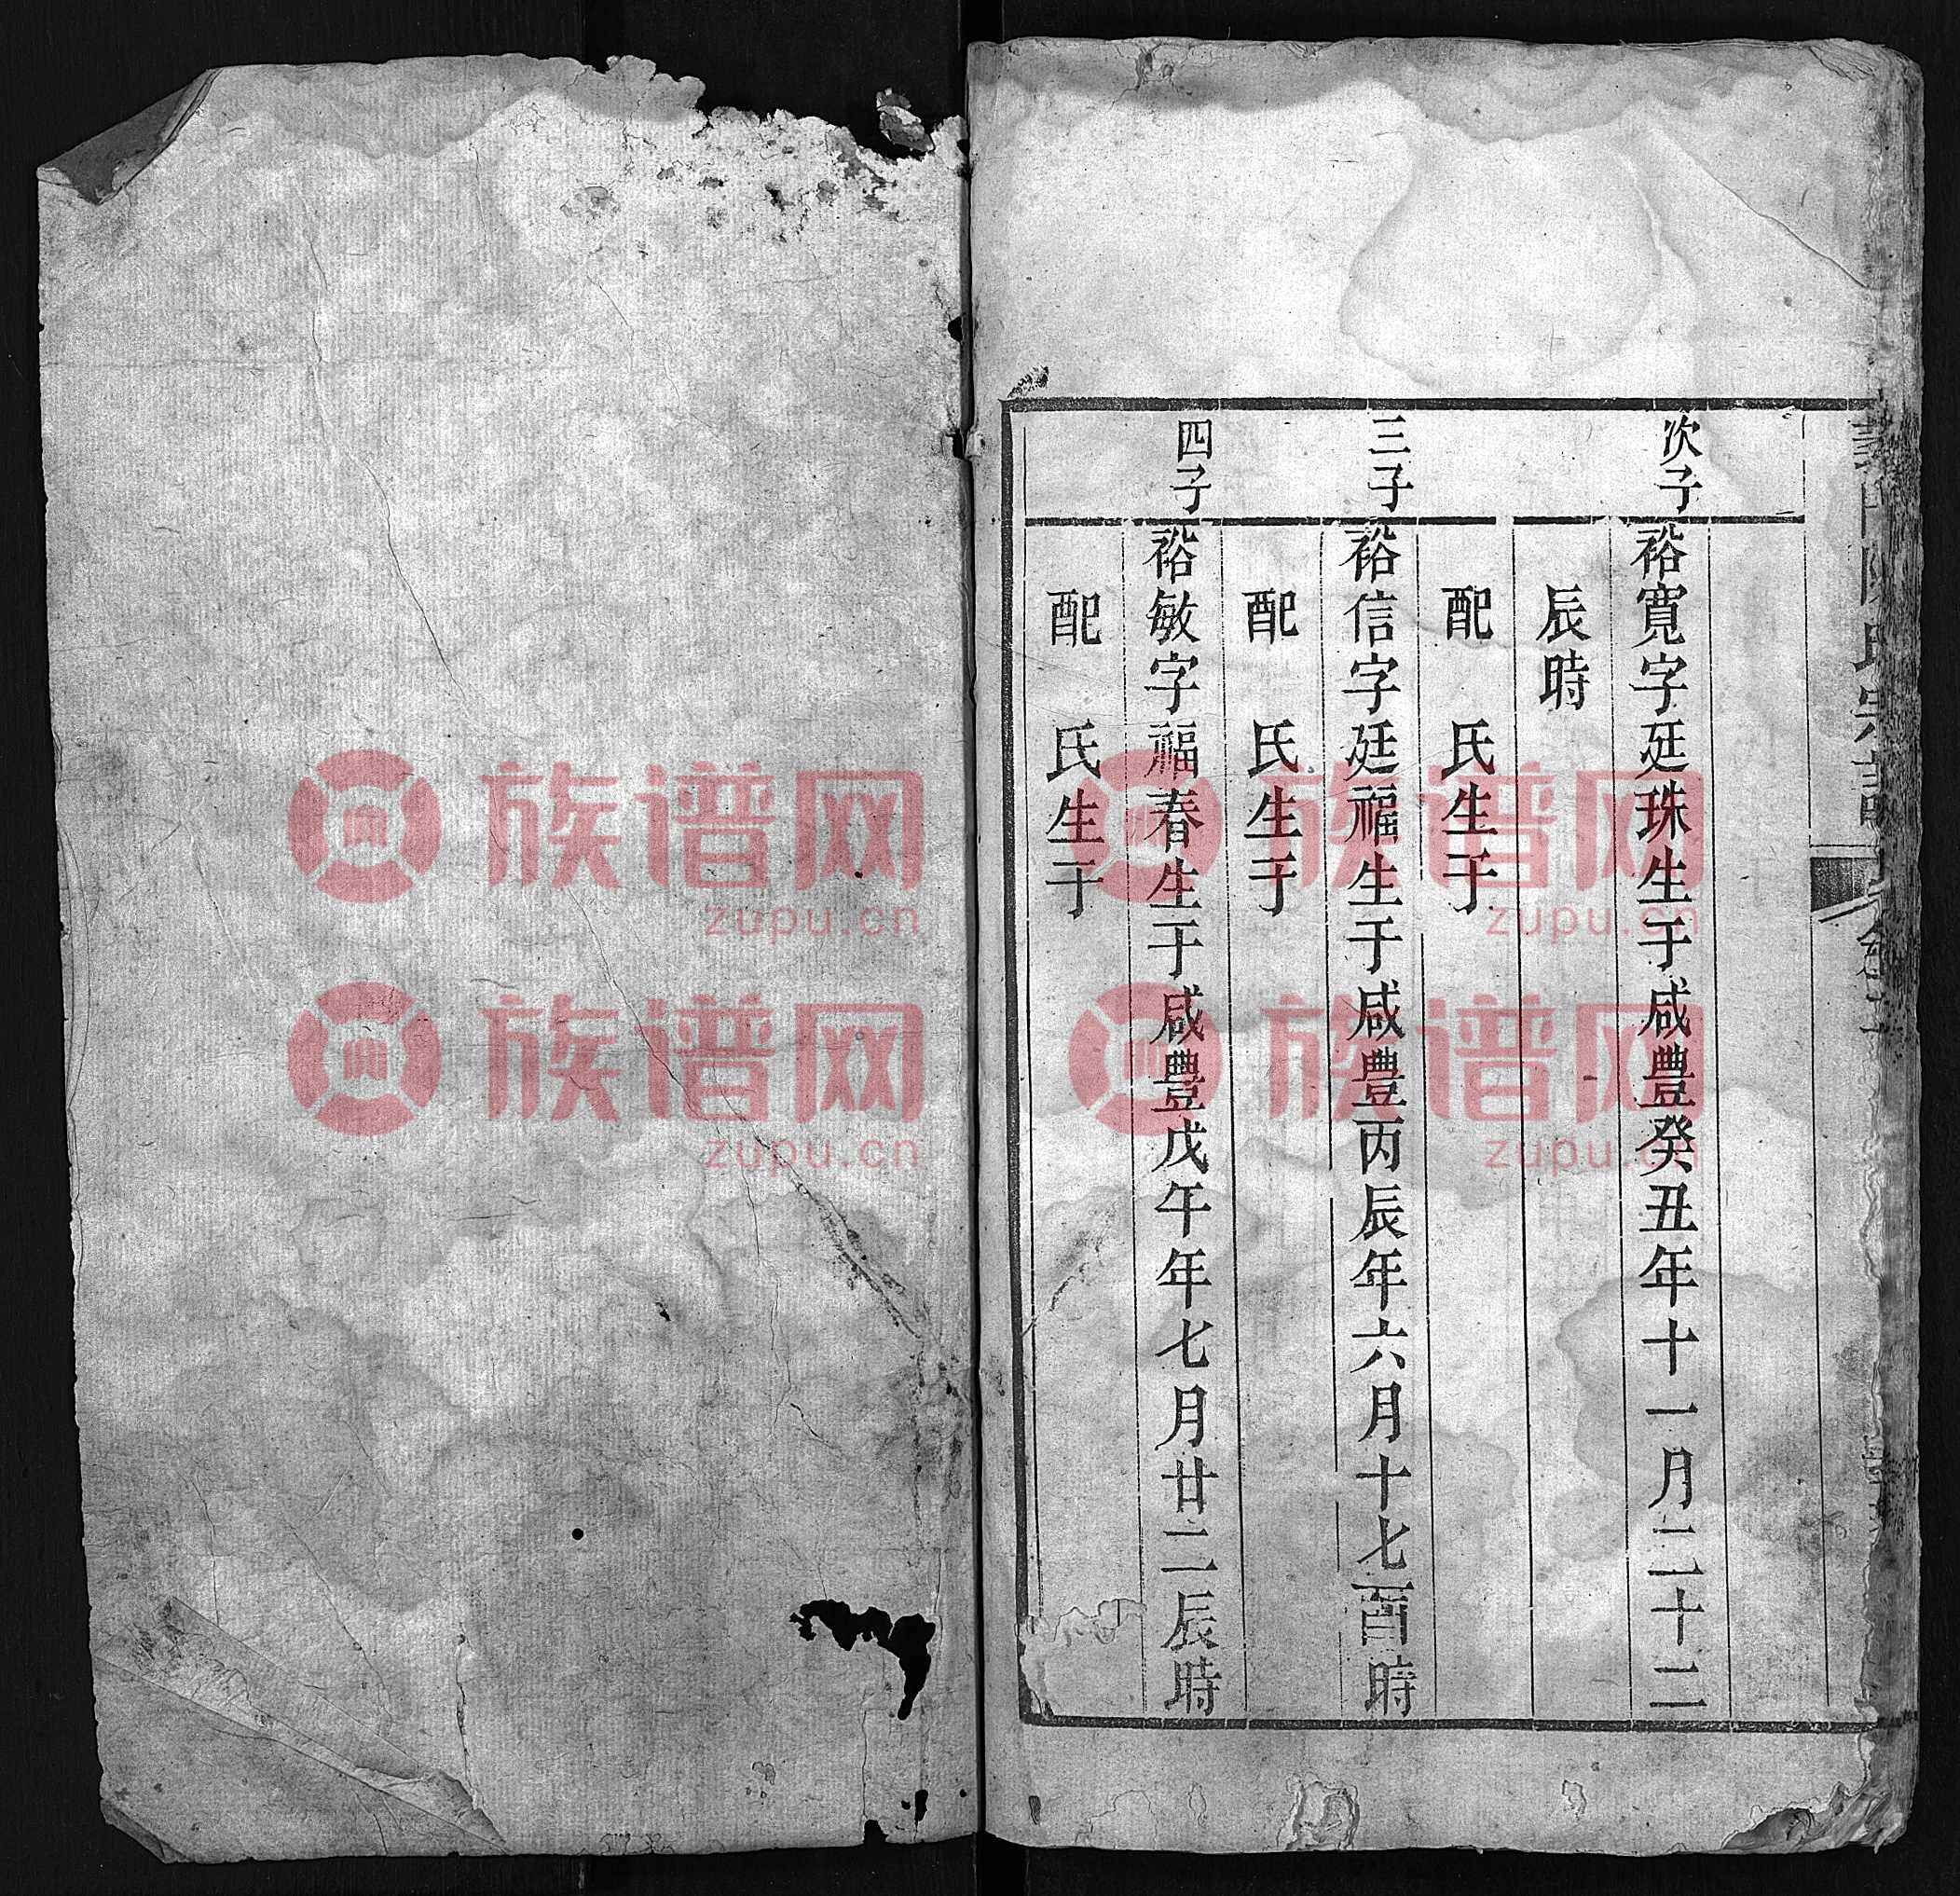 義門陳氏宗譜
次子
裕寬字廷珠生于咸豐癸丑年十一月二十二
辰時
配 氏生于
三子
裕信字廷福生于咸豐丙辰年六月十七酉時
配 氏生于
四子
裕敏字福春生于咸豐戊午年七月廿二辰時
配 氏生于
族谱网
zupu.cn
族谱网
zupu.cn
族谱网
zupu.cn
族谱网
zupu.cn